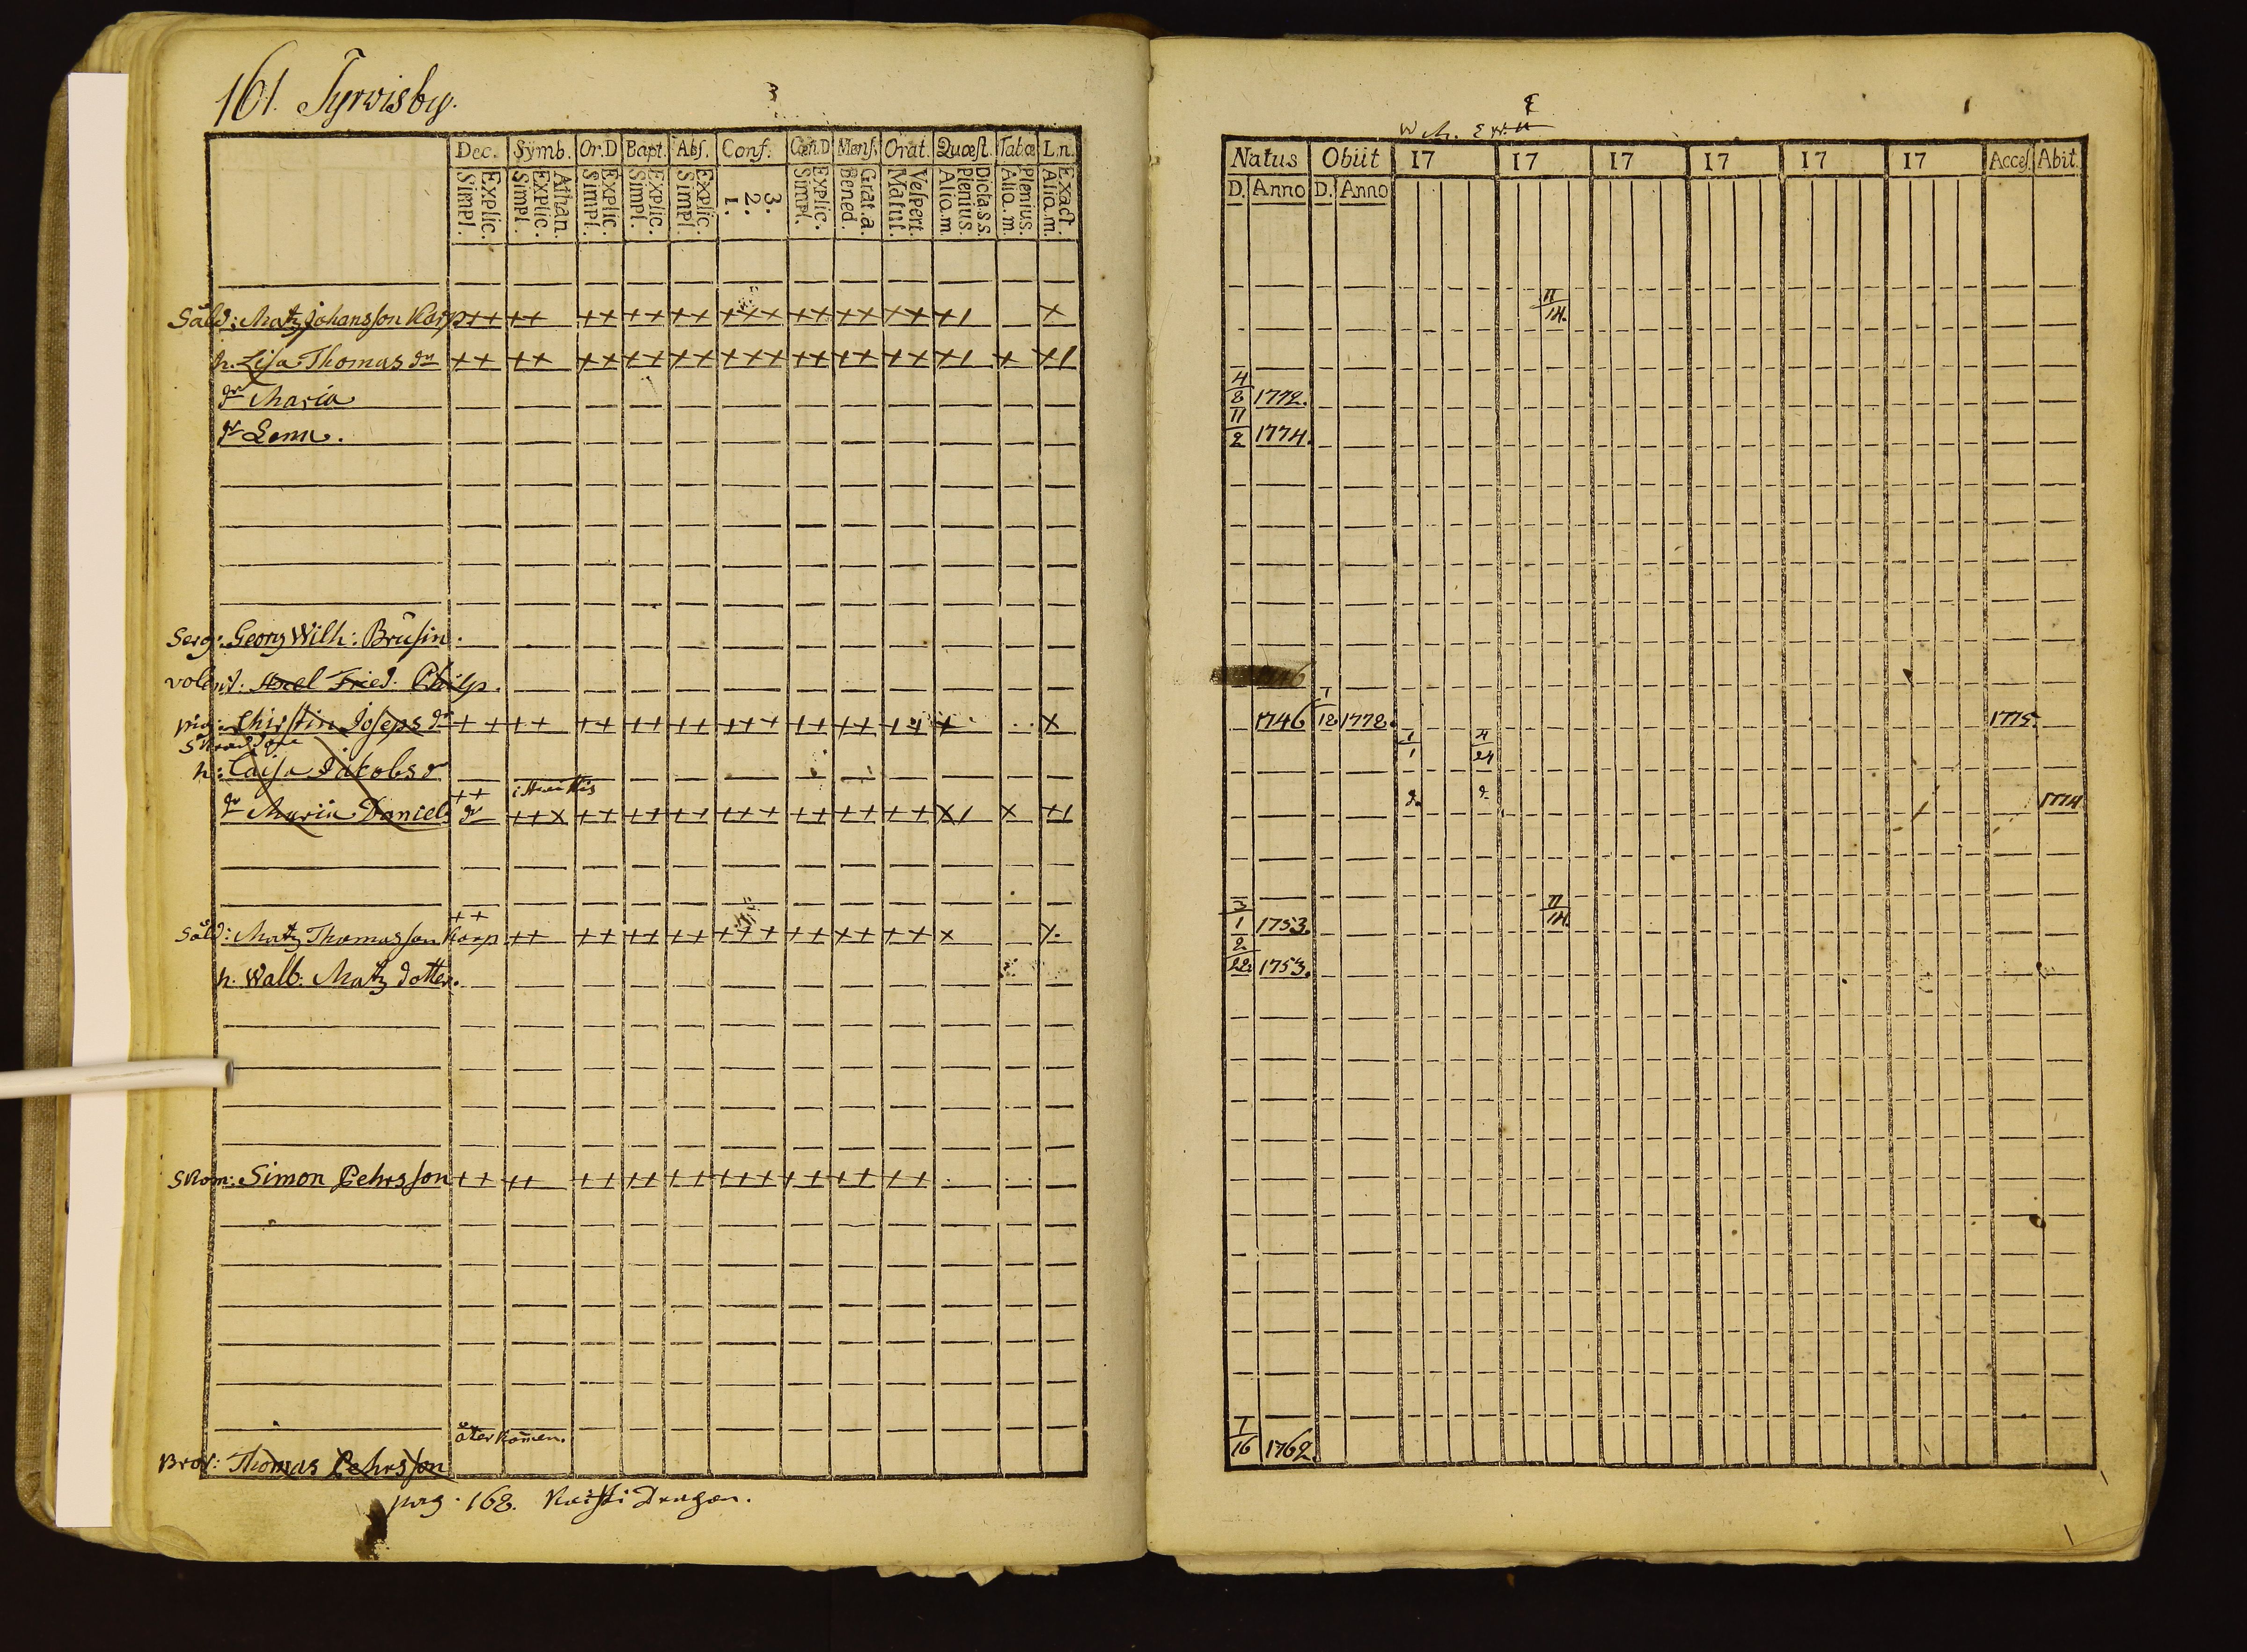 161. Tyrvisby.
Dec. Symb. Or.D Bapt. Abs. Conf. Cœn.D Mens. Orat. Quæst. Tab.œ L.n.
Explic. Simpl. Athan. Explic. Simpl. Explic. Simpl. Explic. Simpl. Explic. Simpl. 3. 2. 1. Explic. Simpl. Grat.a. Bened. Vespert. Matut. Dicta.s s. Plenius. Aliq.m Plenius. Aliq.m Exact. Aliq.m.
Såld: Matz Johansson Karp ++ ++ ++ ++ ++ +++ ++ ++ ++ +1 +
h. Lisa Thomas dr ++ ++ ++ ++ ++ +++ ++ ++ ++ +1 + +1
dr Maria
dr Lena.
Serg: Georg Wilh: Brusin.
volont: Axel Fried. Philp.
pig: Christin Joseps dr ++ ++ ++ ++ ++ +++ ++ ++ + +
h: Caisa Jakobs dr
++
dr Maria Daniels dr ++x ++ ++ ++ +++ ++ ++ ++ x1 x +1
++
Såld: Matz Thomasson Karp ++ ++ ++ ++ +++ ++ ++ ++ x
h. Walb: Matz dotter.
Skom: Simon Pehrsson ++ ++ ++ ++ ++ +++ ++ ++ ++
återkomen.
Brod: Thomas Pehrsson
pag. 168. Dragon.
Natus Obiit 17 17 17 17 17 17 Acces. Abit.
D. Anno D. Anno
11/14.
4/8 1772.
11/2 1774.
1746 1/12 1772. 1775.
1/1 4/24
d. d. 1774
3/1 1753. 11/14.
2/22 1753.
1/16 1762.